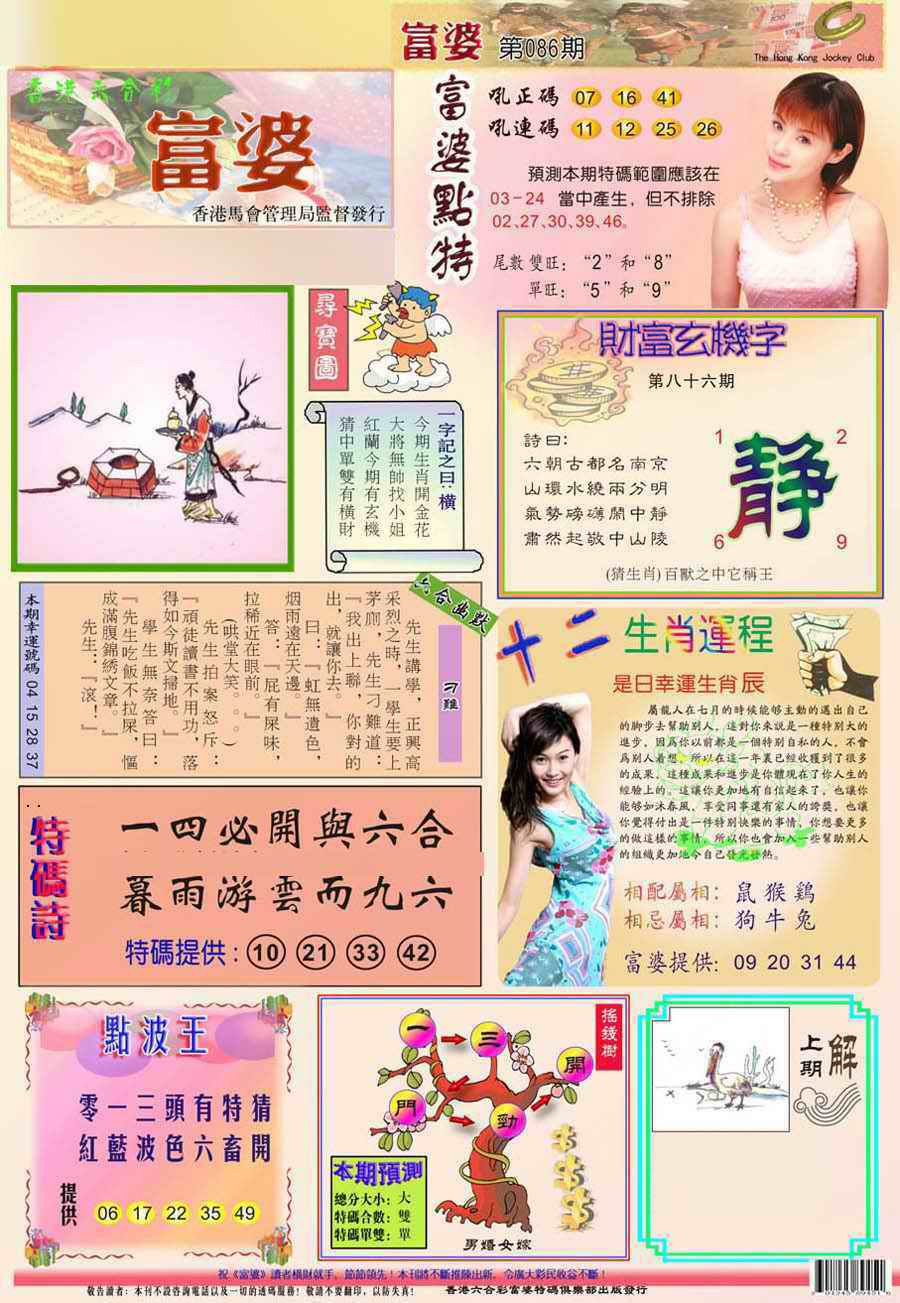 富婆 第086期
The Hong Kong Jockey Club
香港六合彩
富婆
香港馬會管理局監督發行
富婆點特
吼正碼 07 16 41
吼連碼 11 12 25 26
預測本期特碼範圍應該在
03-24 當中產生，但不排除
02、27、30、39、46。
尾數雙旺：“2”和“8”
單旺：“5”和“9”
尋寶圖
一字記之曰：橫
今期生肖開金花
大將無帥找小姐
紅蘭今期有玄機
猜中單雙有橫財
財富玄機字
第八十六期
詩曰：
六朝古都名南京
山環水繞兩分明
氣勢磅礴鬧中靜
肅然起敬中山陵
1 2
静
6 9
(猜生肖)百獸之中它稱王
六合幽默
刁難
先生講學，正興高
采烈之時，一學生要上
茅廁，先生刁難道：
『我出上聯，你對的
出，就讓你去。』
曰：『虹無遺色，
烟雨遠在天邊。』
答：『屁有屎味，
拉稀近在眼前。』
(哄堂大笑。。。)
先生拍案怒斥：
『頑徒讀書不用功，落
得如今斯文掃地。』
學生無奈答曰：慪
『先生吃飯不拉屎，
成滿腹錦綉文章。』
先生：『滾！』
本期幸運號碼 04 15 28 37
十二生肖運程
是日幸運生肖 辰
屬龍人在七月的時候能够主動的邁出自己
的脚步去幫助别人，這對你來説是一種特别大的
進步，因爲你以前都是一個特别自私的人，不會
爲别人着想，所以在這一年裏已經收獲到了很多
的成果，這種成果和進步是你體現在了你人生的
經驗上的。這讓你更加地有自信起來了，也讓你
能够如沐春風，享受同事還有家人的誇獎，也讓
你覺得付出是一件特别快樂的事情，你想要更多
的做這樣的事情，所以你也會加入一些幫助别人
的組織更加地令自己發光發熱。
相配屬相：鼠 猴 鷄
相忌屬相：狗 牛 兔
富婆提供：09 20 31 44
特碼詩
一四必開與六合
暮雨游雲而九六
特碼提供：10 21 33 42
點波王
零一三頭有特猜
紅藍波色六畜開
提供 06 17 22 35 49
搖錢樹
一 三
開
門 勁
本期預測
總分大小：大
特碼合數：雙
特碼單雙：單
男婚女嫁
上期解
祝《富婆》讀者橫財就手，節節領先！本刊將不斷推陳出新，令廣大彩民收益不斷！
敬告讀者：本刊不設咨詢電話以及一切的透碼服務！敬請不要翻印，以防失真！ 香港六合彩富婆特碼俱樂部出版發行